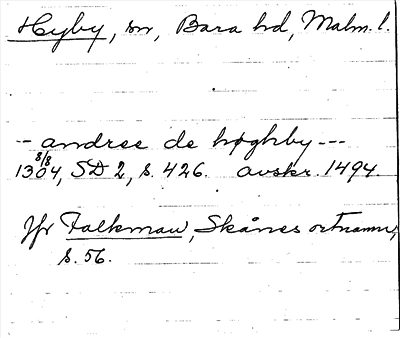 Hyby, sn, Bara hd, Malm. l.
-- andree de høghby ---
8/8
1304, SD 2, s. 426. avskr. 1494.
Jfr Falkman, Skånes ortnamn,
s. 56.